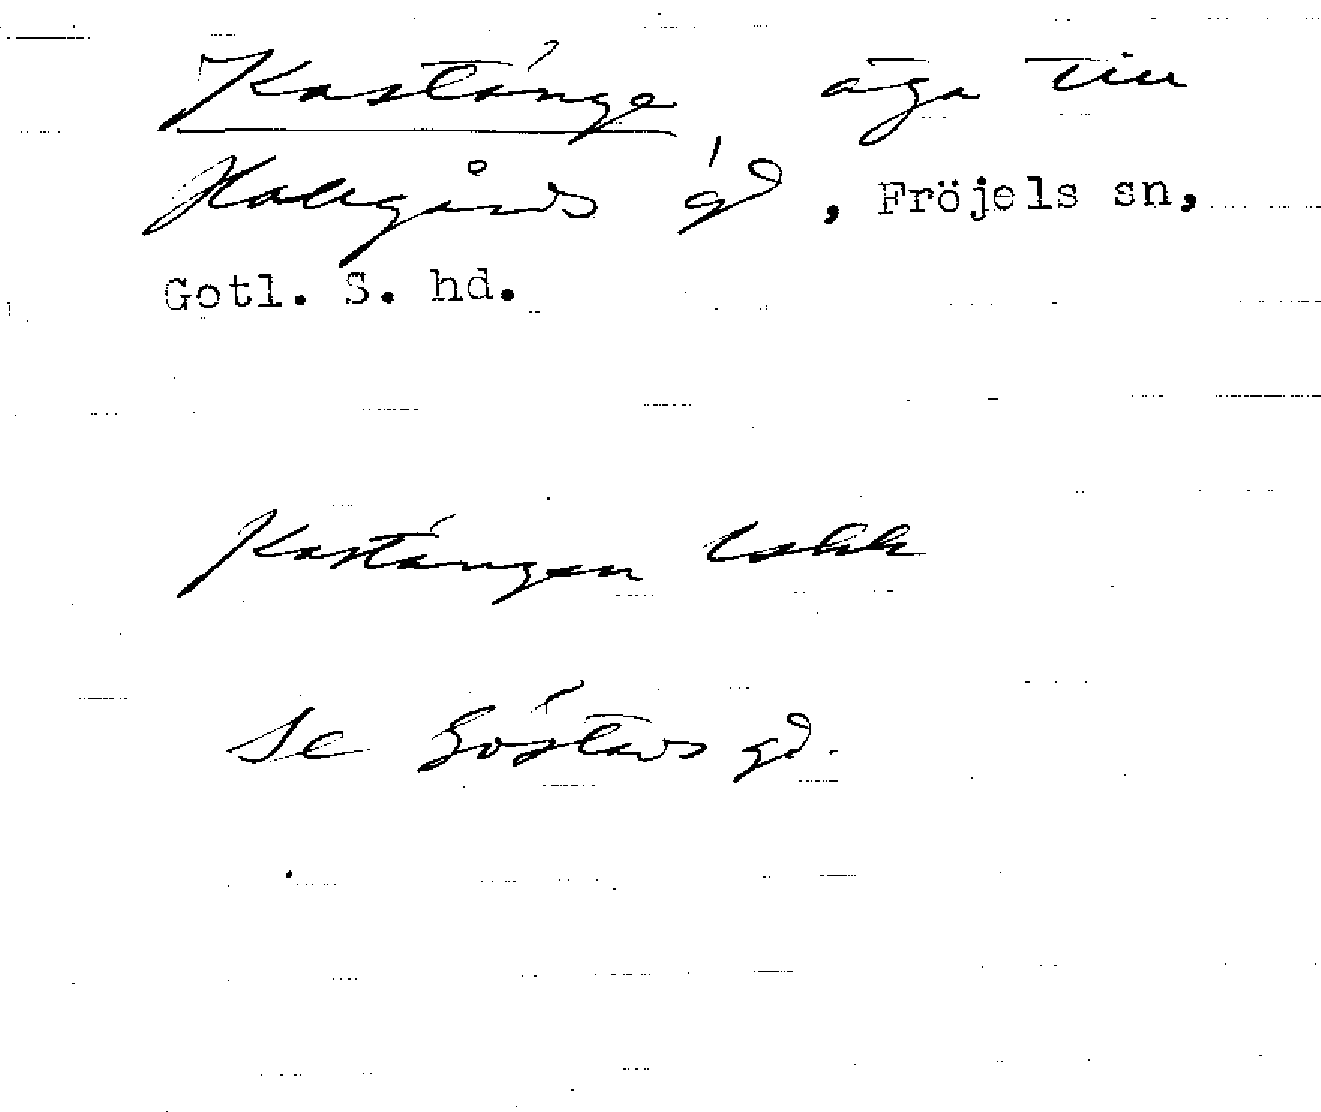 Kastänge äga till
Hallgårds gd, Fröjels sn,
Gotl. S. hd.
Kastängen
Se Göstavs gd.